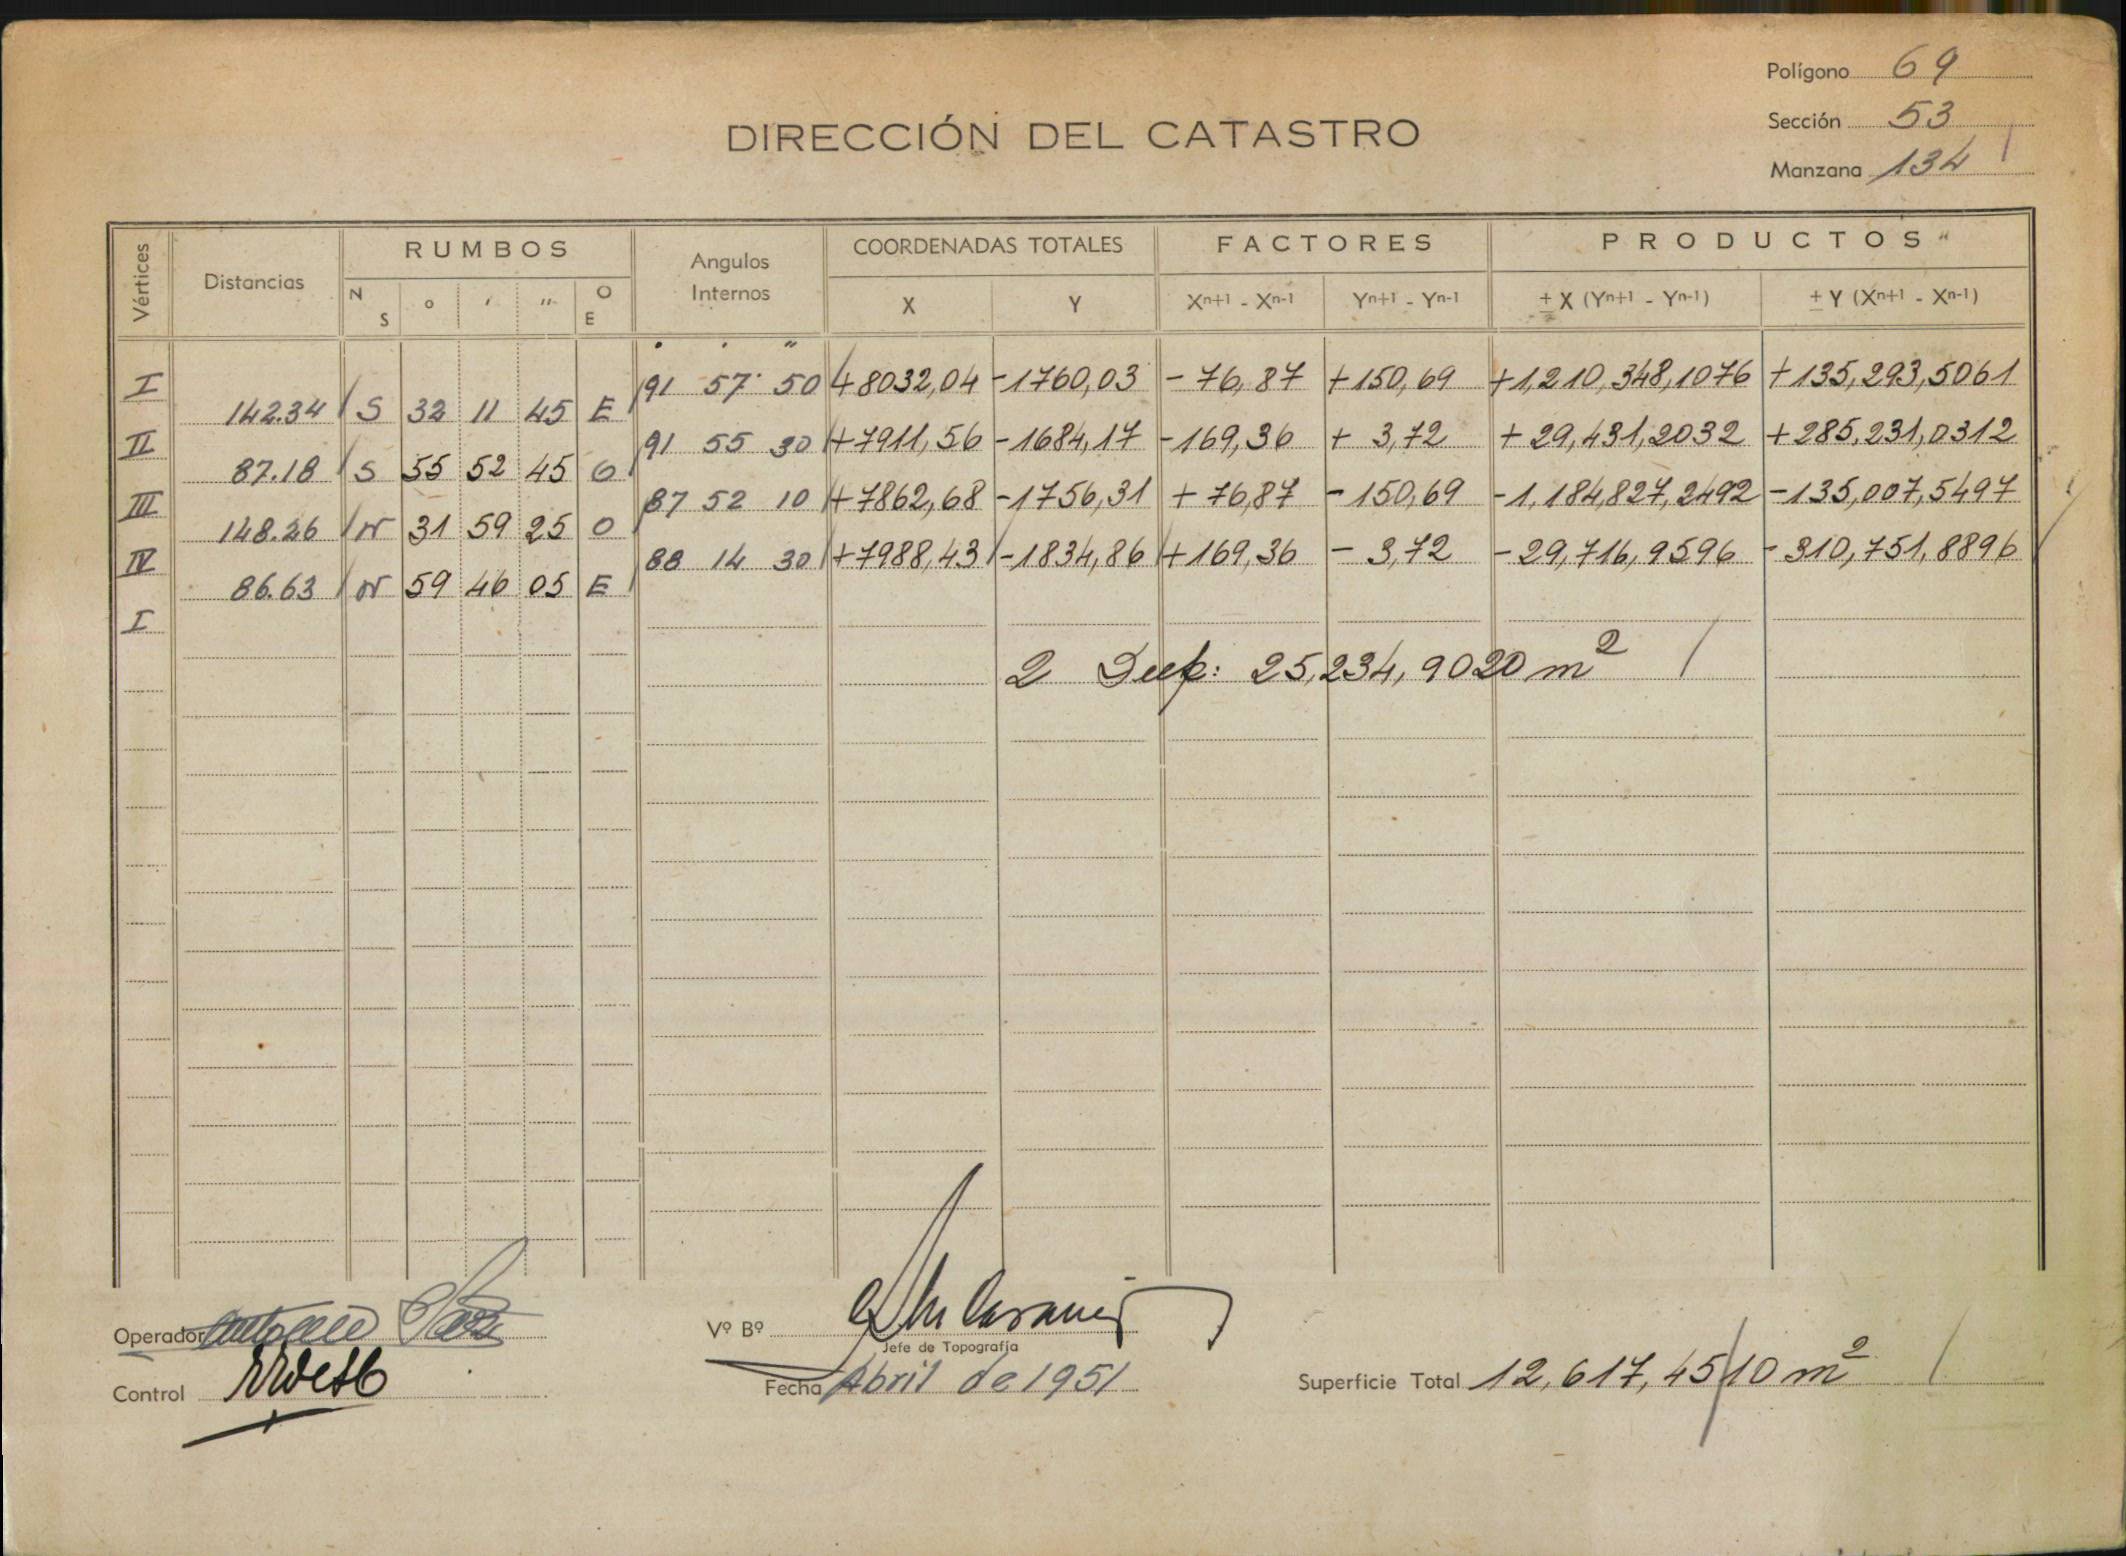 Polígono 69
DIRECCIÓN DEL CATASTRO
Sección 53
Manzana 134
Vértices Distancias RUMBOS Angulos Internos COORDENADAS TOTALES FACTORES PRODUCTOS
N S o ′ ″ O E X Y Xn+1 - Xn-1 Yn+1 - Yn-1 ± X (Yn+1 - Yn-1) ± Y (Xn+1 - Xn-1)
I 91 57 50 +8032,04 -1760,03 -76,87 +150,69 +1,210,348,1076 +135,293,5061
142.34 S 32 11 45 E
II 91 55 30 +7911,56 -1684,17 -169,36 + 3,72 +29,431,2032 +285,231,0312
87.18 S 55 52 45 O
III 87 52 10 +7862,68 -1756,31 +76,87 -150,69 -1,184,827,2492 -135,007,5497
148.26 N 31 59 25 O
IV 88 14 30 +7988,43 -1834,86 +169,36 - 3,72 -29,716,9596 -310,751,8896
86.63 N 59 46 05 E
I
2 Sup: 25,234,9020 m2
Operador
Vº Bº
Jefe de Topografía
Control
Fecha Abril de 1951
Superficie Total 12,617,4510 m2